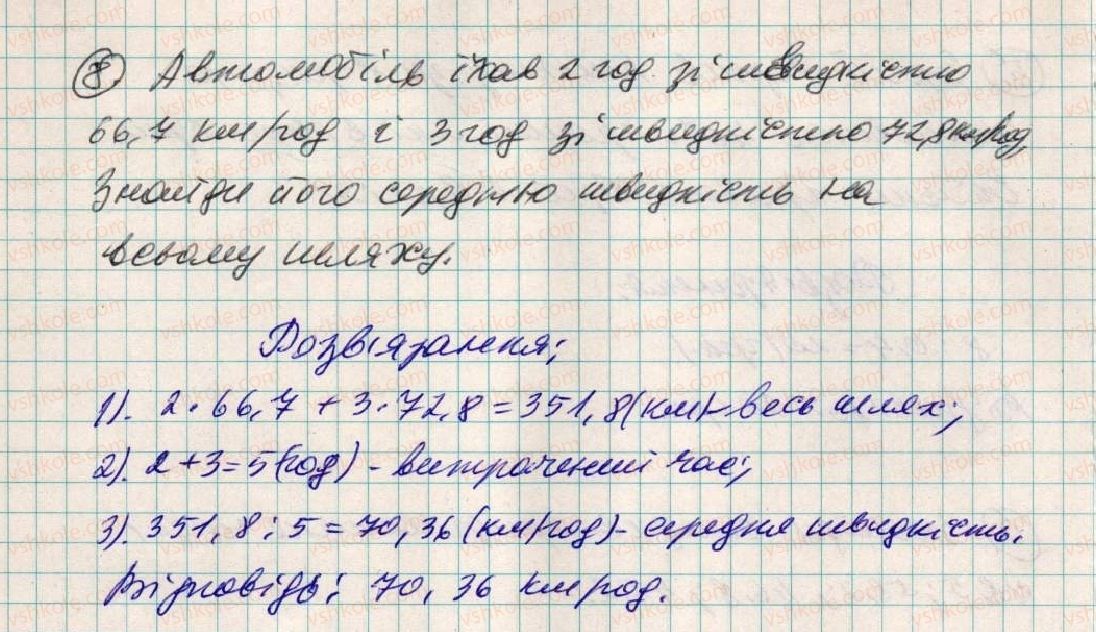 8 Автомобіль їхав 2 год зі швидкістю
66,7 км/год і 3 год зі швидкістю 72,8 км/год,
Знайди його середню швидкість на
всьому шляху.
Розв'язання;
1). 2·66,7 + 3·72,8 = 351,8 (км) - весь шлях;
2). 2+3=5(год) - витрачений час;
3). 351,8 : 5 = 70,36 (км/год) - середня швидкість.
Відповідь: 70,36 км/год.